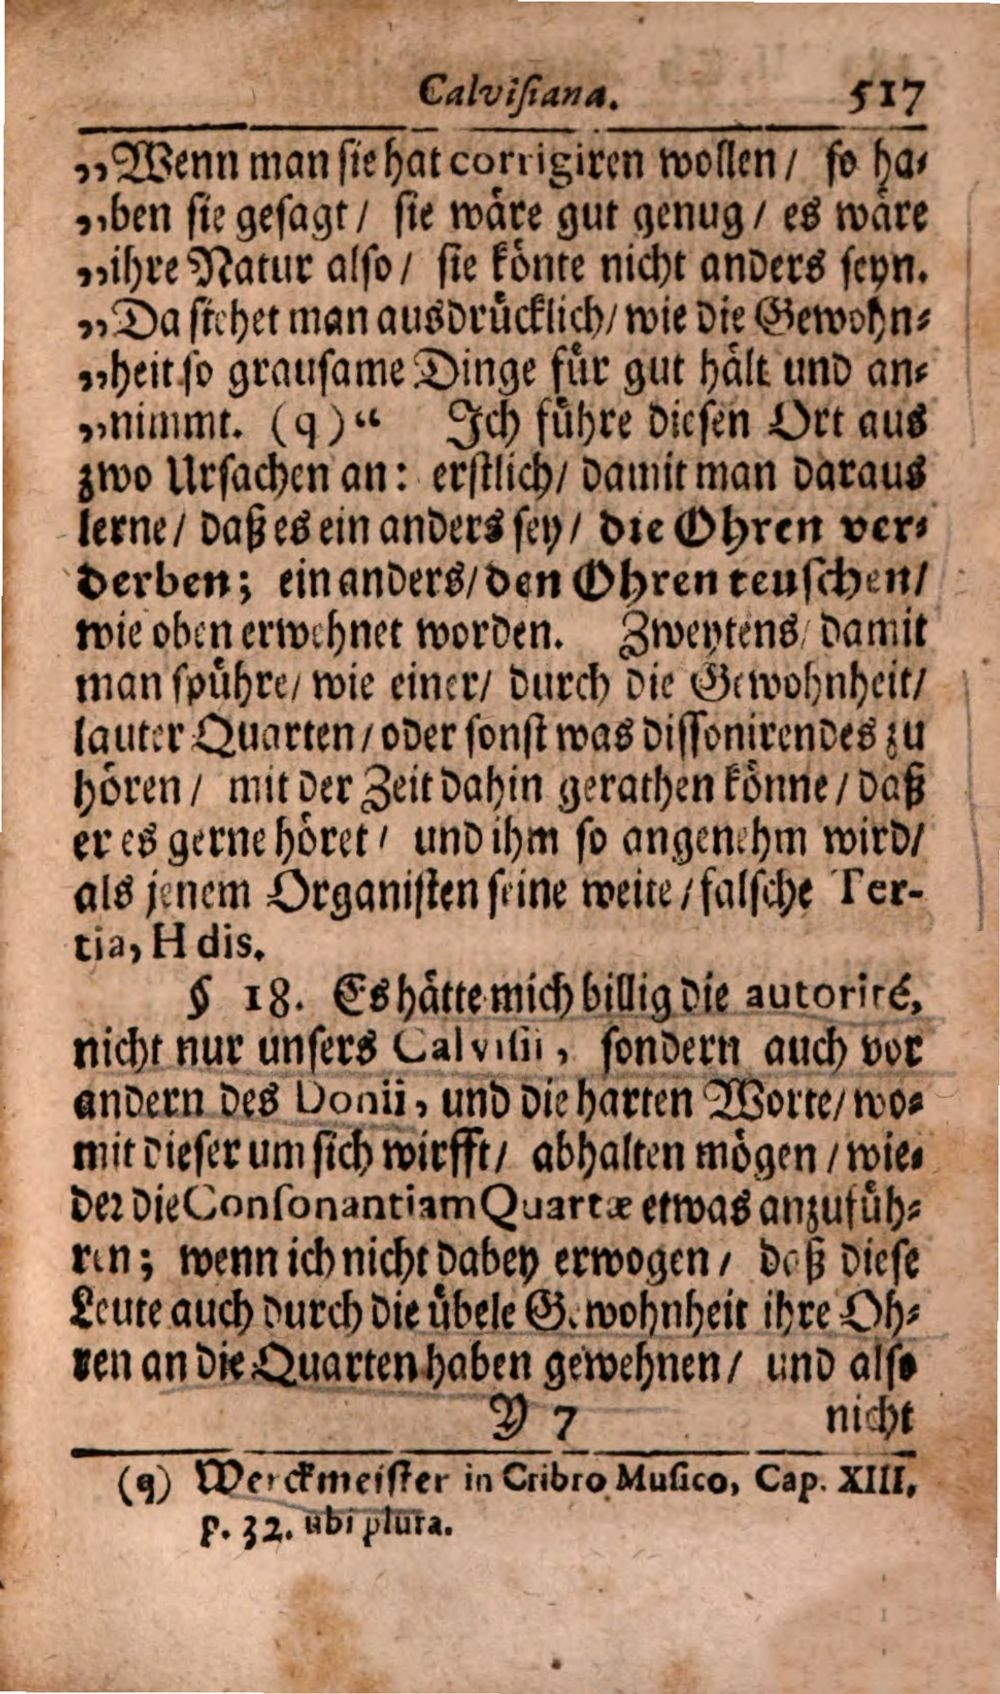 Calvisiana. 517
„Wenn man sie hat corrigiren wollen / so ha-
„ben sie gesagt / sie wäre gut genug / es wäre
„ihre Natur also / sie könte nicht anders seyn.
„Da siehet man ausdrücklich / wie die Gewohn-
„heit so grausame Dinge für gut hält und an-
„nimmt. (q)“ Ich führe diesen Ort aus
zwo Ursachen an: erstlich / damit man daraus
lerne / daß es ein anders sey / die Ohren ver-
derben; ein anders / den Ohren teuschen /
wie oben erwehnet worden. Zweytens / damit
man spühre / wie einer / durch die Gewohnheit /
lauter Quarten / oder sonst was dissonirendes zu
hören / mit der Zeit dahin gerathen könne / daß
er es gerne höret / und ihm so angenehm wird /
als jenem Organisten seine weite / falsche Ter-
tia, H dis.
§ 18. Es hätte mich billig die autorité,
nicht nur unsers Calvisii, sondern auch vor
andern des Donii, und die harten Worte / wo-
mit dieser um sich wirfft / abhalten mögen / wie-
der die Consonantiam Quartæ etwas anzufüh-
ren; wenn ich nicht dabey erwogen / daß diese
Leute auch durch die übele Gewohnheit ihre Oh-
ren an die Quarten haben gewehnen / und also
Y 7 nicht
(q) Werckmeister in Cribro Musico, Cap. XIII.
p. 32. ubi plura.